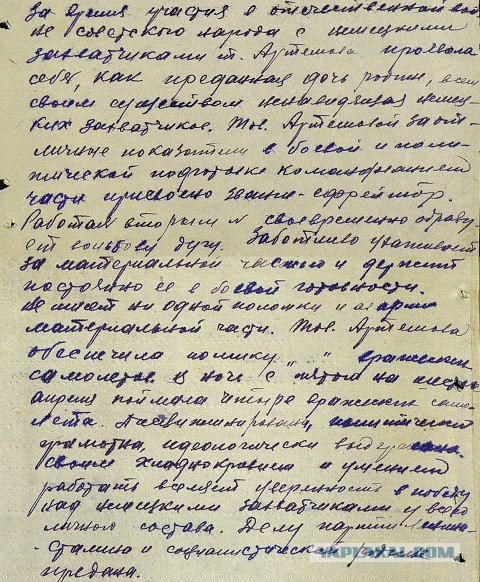 За время участия в отечественной вой-
не советского народа с немецкими
захватчиками т. Артемова проявила
себя, как преданная дочь родины, всем
своим существом ненавидящая немец-
ких захватчиков. Тов. Артемовой за от-
личные показатели в боевой и поли-
тической подготовке командованием
части присвоено звание - ефрейтор.
Работая вторым № своевременно образу-
ет вольтову дугу. Заботливо ухаживает
за материальной частью и держит
постоянно ее в боевой готовности.
Не имеет ни одной поломки и аварии
материальной части. Тов. Артемова
обеспечила поимку " " вражеских
самолетов. В ночь с пятого на шестое
апреля поймала четыре вражеских само-
лета. Дисциплинирована, политически
грамотна, идеологически выдержана.
Своим хладнокровием и умением
работать вселяет уверенность в победу
над немецкими захватчиками у всего
личного состава. Делу партии Ленина
- Сталина и социалистической родине
предана.
YAPLAKAL.COM